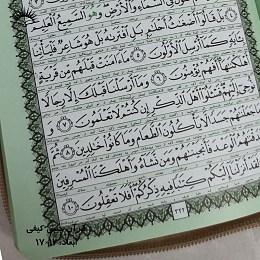 السَّمَاءِ وَالْأَرْضِ وَهُوَ السَّمِيعُ الْعَلِيمُ
بَلْ قَالُوا أَضْغَاثُ أَحْلَامٍ بَلِ افْتَرَاهُ بَلْ هُوَ شَاعِرٌ فَلْيَأْتِنَا
بِآيَةٍ كَمَا أُرْسِلَ الْأَوَّلُونَ ٥ مَا آمَنَتْ قَبْلَهُمْ مِنْ قَرْيَةٍ
أَهْلَكْنَاهَا أَفَهُمْ يُؤْمِنُونَ ٦ وَمَا أَرْسَلْنَا قَبْلَكَ إِلَّا رِجَالًا
نُوحِي إِلَيْهِمْ فَسْأَلُوا أَهْلَ الذِّكْرِ إِنْ كُنْتُمْ لَا تَعْلَمُونَ ٧
جَعَلْنَاهُمْ جَسَدًا لَا يَأْكُلُونَ الطَّعَامَ وَمَا كَانُوا خَالِدِينَ ٨
صَدَقْنَاهُمُ الْوَعْدَ فَأَنْجَيْنَاهُمْ وَمَنْ نَشَاءُ وَأَهْلَكْنَا الْمُسْرِفِينَ
لَقَدْ أَنْزَلْنَا إِلَيْكُمْ كِتَابًا فِيهِ ذِكْرُكُمْ أَفَلَا تَعْقِلُونَ ١٠
٣٢٢
کیفی
ابعاد: ١٢*١٧